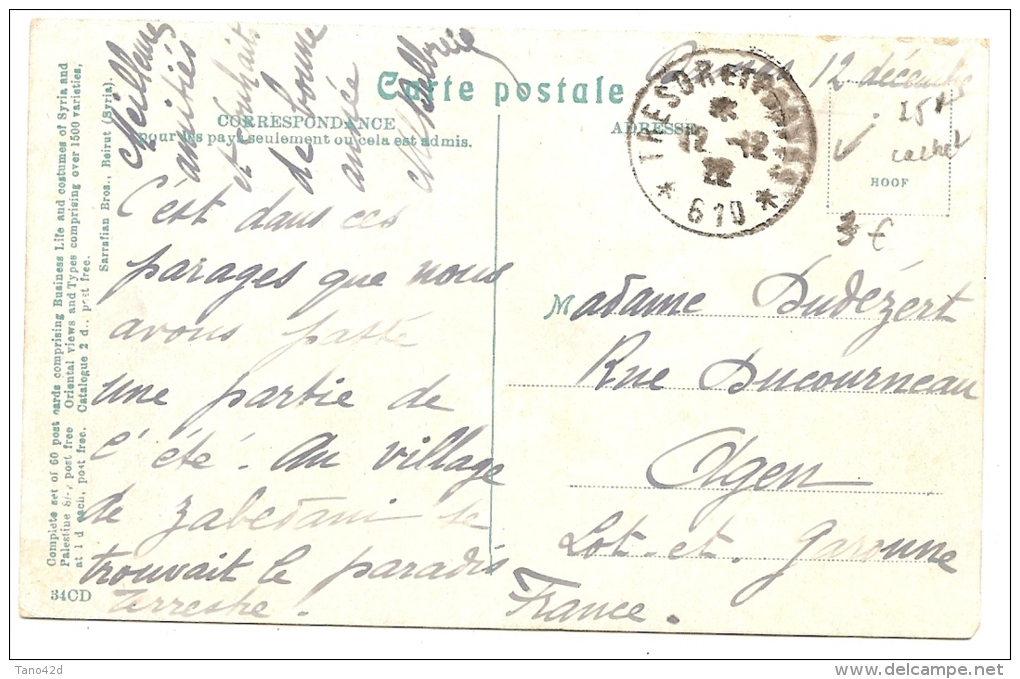 Meilleures
amitiés
et souhaits
de bonne
année
12 décembre
Carte postale
CORRESPONDANCE
pour les pays seulement ou cela est admis.
ADRESSE
TRESOR ET POSTES
12 -12
22
* 610 *
15€
cachet
HOOF
3 €
C'est dans ces
parages que nous
avons passé
une partie de
l'été. Au village
de Zabedani se
trouvait le paradis
terrestre.
Madame Dudézert
Rue Ducourneau
Agen
Lot-et-Garonne
France.
Complete set of 60 post cards comprising Business Life and costumes of Syria and
Palestine post free Oriental views and Types comprising over 1500 varieties,
at 1 d each, post free. Catalogue 2 d., post free.
Sarrafian Bros., Beirut (Syria).
34CD
Tano42d
www.delcampe.net